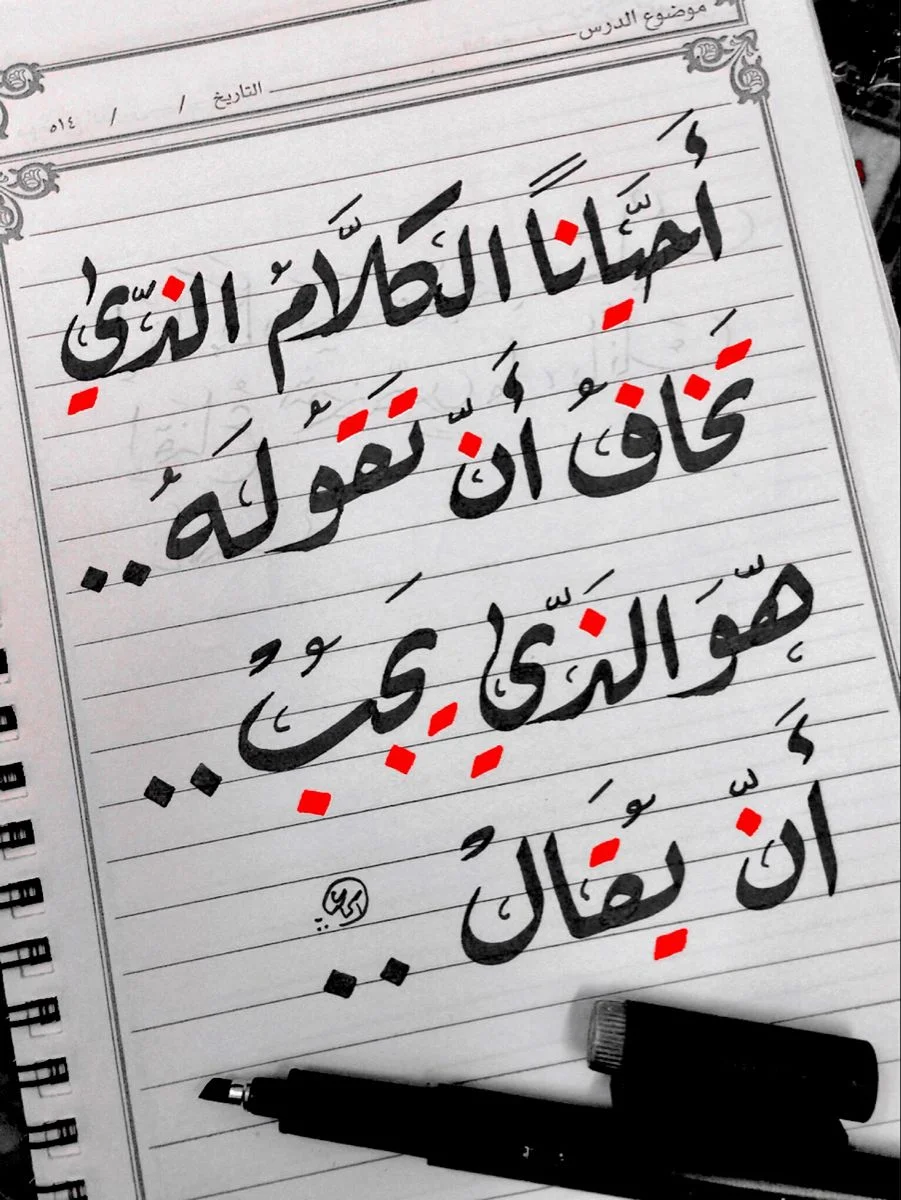 موضوع الدرس
التاريخ / / ١٤٥
أَحيَّاناً الكَلَّامُ الذّي
تَخافُ أَنّ تَقُولَهُ..
هوَّ الذَّي يَجبُ..
أَنّ يُقَالُ..